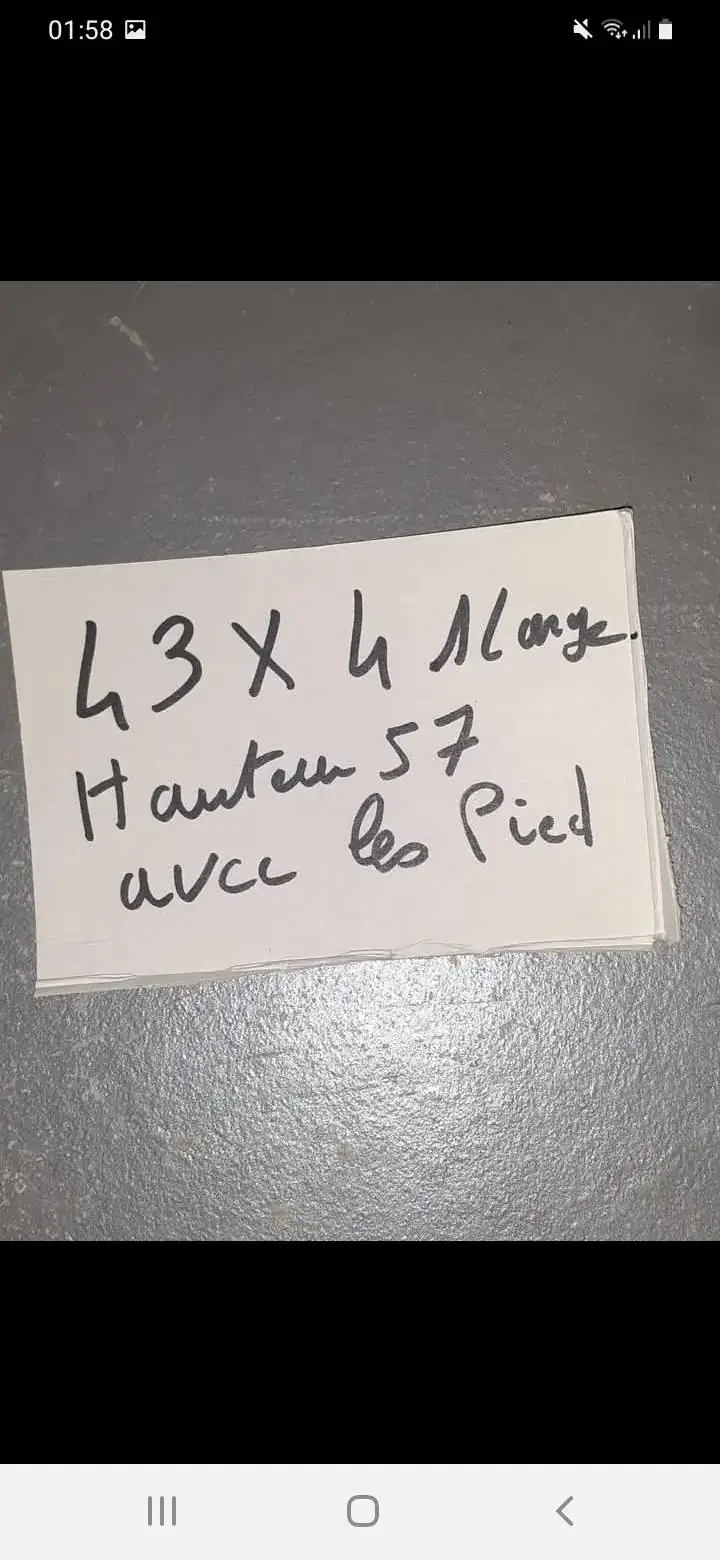 01:58
43 X 41 large.
Hauteur 57
avec les Pied